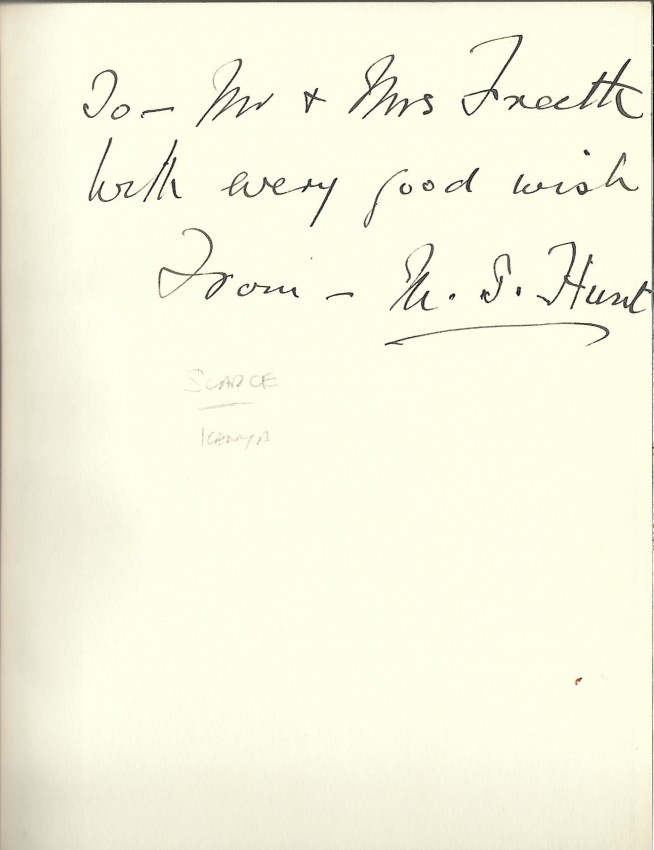 To — Mr & Mrs Freeth
With every good wish
From — M. S. Hunt
SCARCE
KENYA